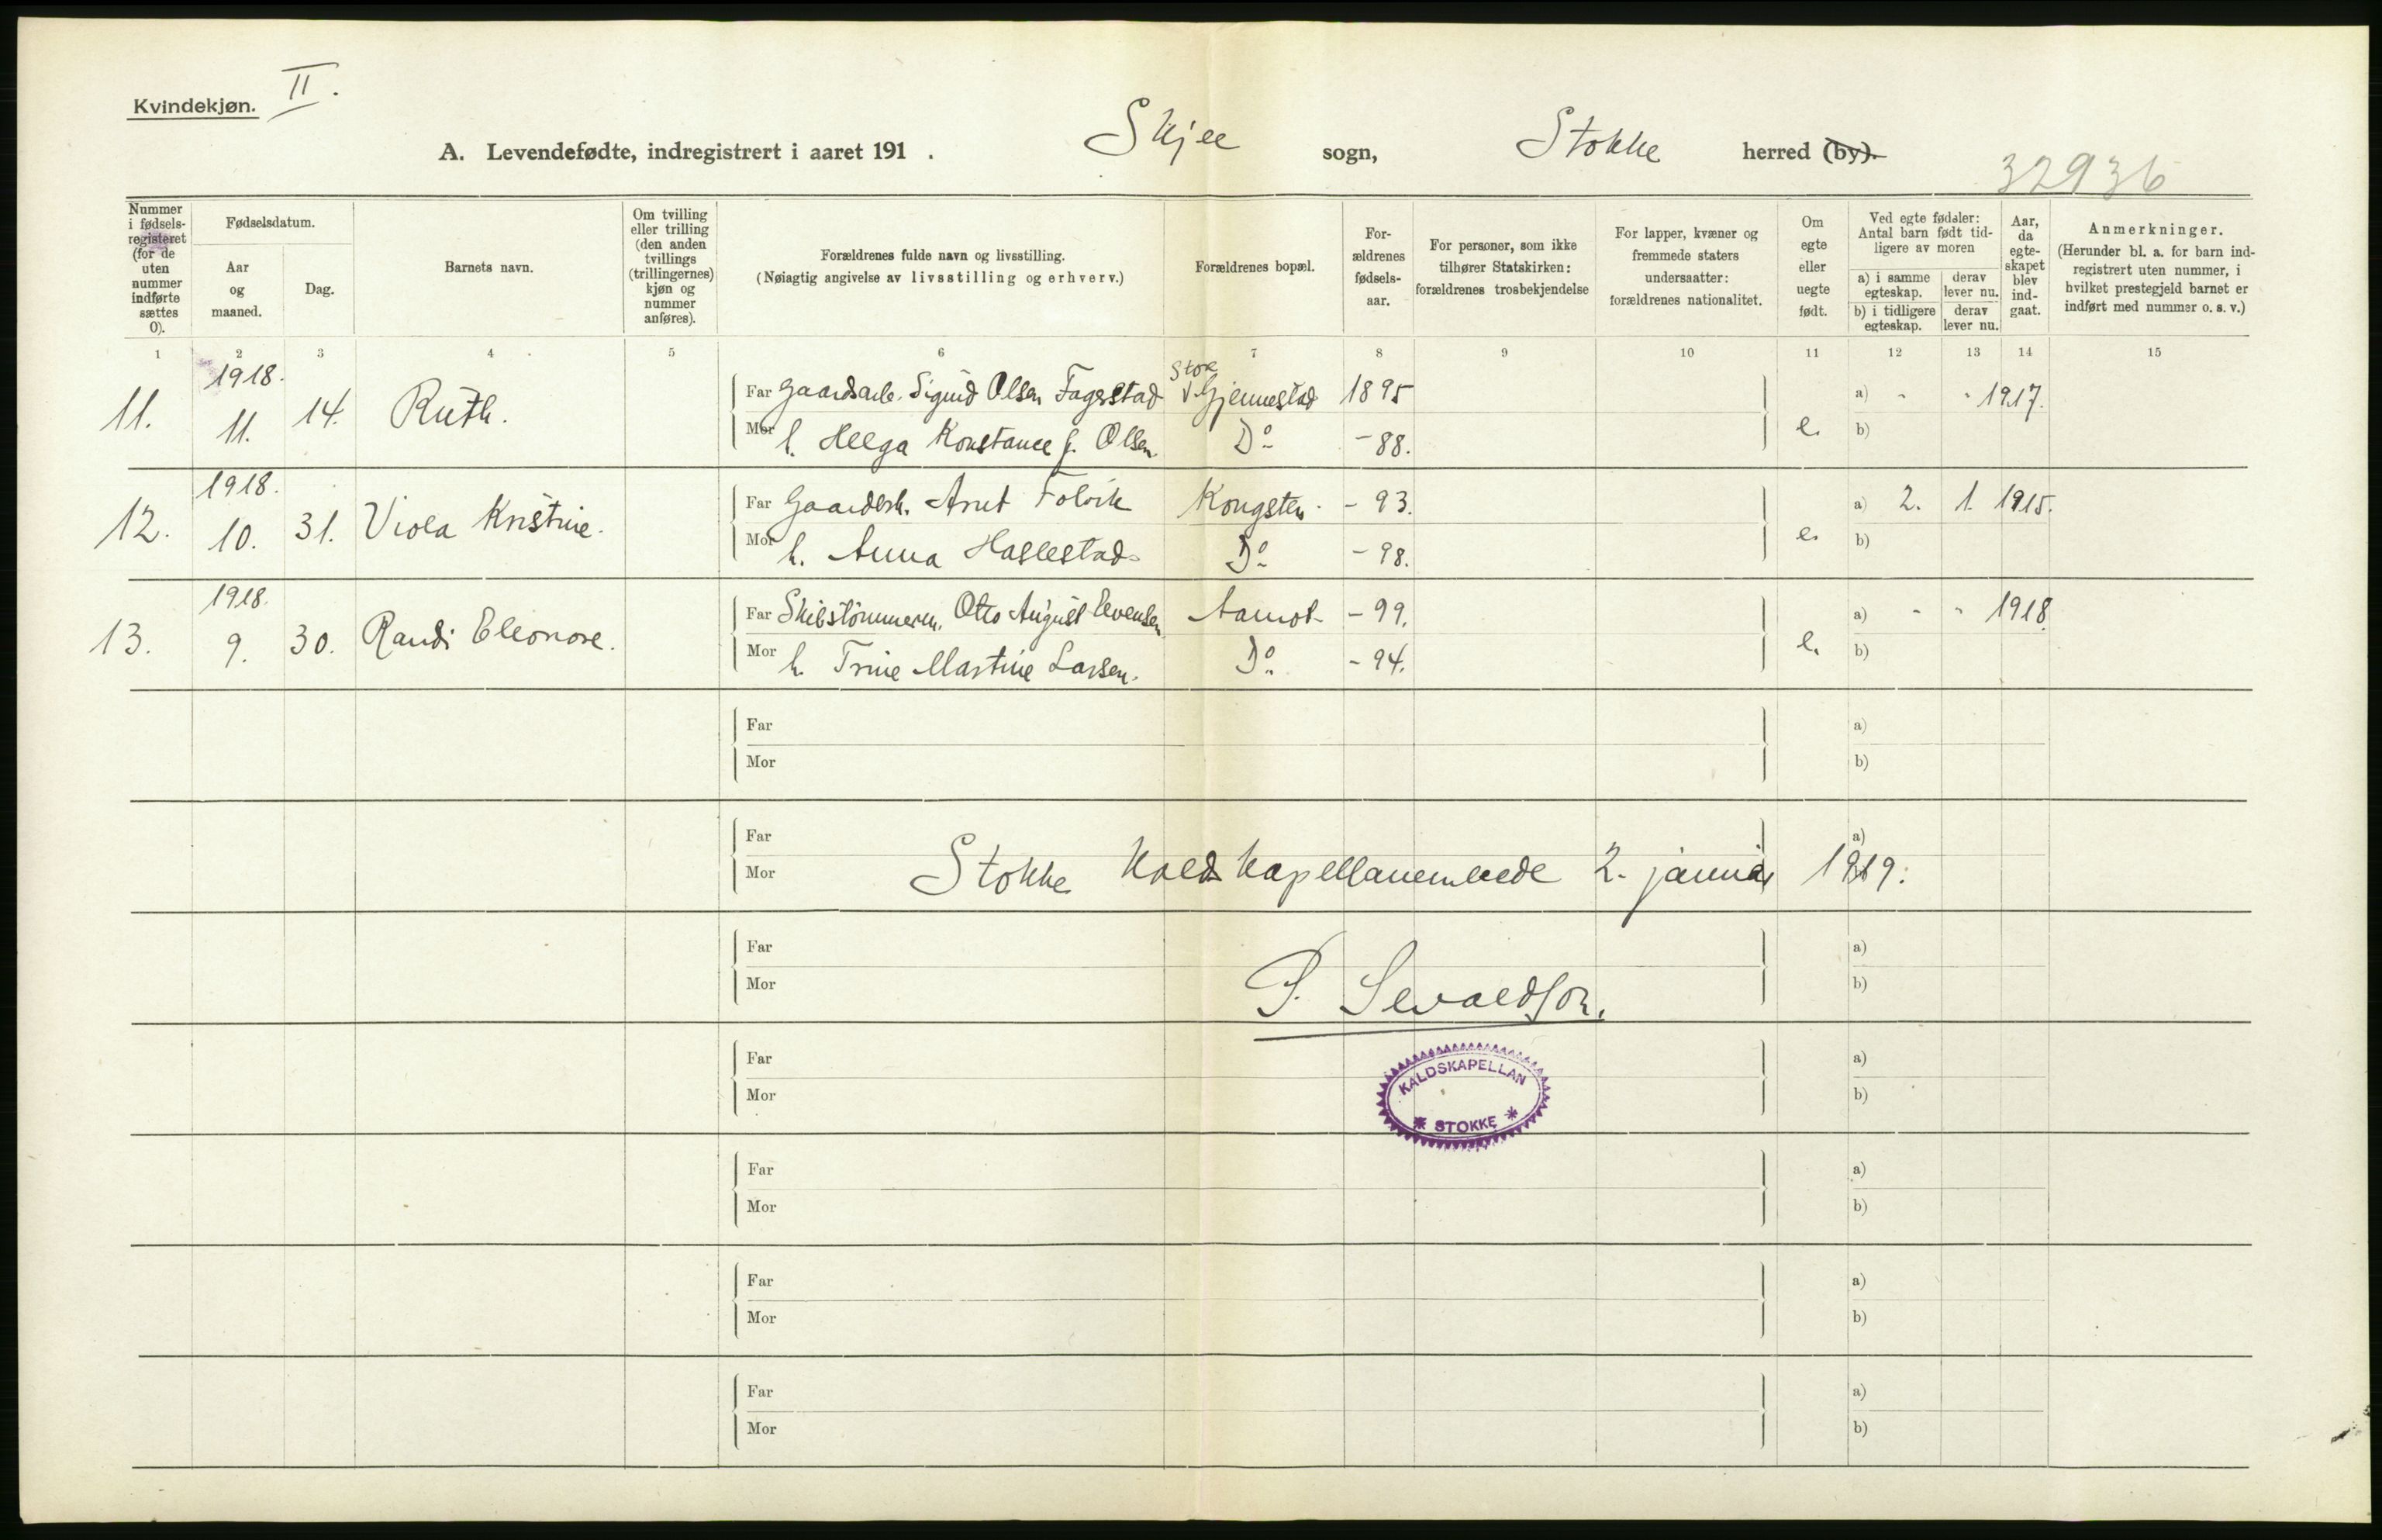 Kvindekjøn. II.
A. Levendefødte, indregistrert i aaret 191 . Skjee sogn, Stokke herred (by).
32936
Nummer i fødsels-registeret (for de uten nummer indførte sættes 0).
Fødselsdatum.
Aar og maaned.
Dag.
Barnets navn.
Om tvilling eller trilling (den anden tvillings (trillingernes) kjøn og nummer anføres).
Forældrenes fulde navn og livsstilling.
(Nøiagtig angivelse av livsstilling og erhverv.)
Forældrenes bopæl.
For-ældrenes fødsels-aar.
For personer, som ikke tilhører Statskirken: forældrenes trosbekjendelse
For lapper, kvæner og fremmede staters undersaatter: forældrenes nationalitet.
Om egte eller uegte født.
Ved egte fødsler: Antal barn født tid-ligere av moren
a) i samme egteskap.
derav lever nu.
b) i tidligere egteskap.
derav lever nu.
Aar, da egte-skapet blev ind-gaat.
Anmerkninger.
(Herunder bl. a. for barn ind-registrert uten nummer, i hvilket prestegjeld barnet er indført med nummer o. s. v.)
1 2 3 4 5 6 7 8 9 10 11 12 13 14 15
11. 1918. 11. 14. Ruth. Far Gaardsarb. Sigurd Olsen Fagerstad Stok V. Gjennestad 1895 a) - - 1917.
Mor h. Helga Konstance f. Olsen. Do - 88. e. b)
12. 1918. 10. 31. Viola Kristine. Far Gaardbr. Arnt Folvik Kongsten - 93. a) 2. 1. 1915.
Mor h. Anna Haslestad Do - 98. e. b)
13. 1918. 9. 30. Randi Eleonore. Far Skibstømmerm. Otto August Evensen Aamot - 99. a) - - 1918
Mor h. Trine Martine Larsen. Do - 94. e. b)
Far a)
Mor b)
Far a)
Mor Stokke Kaldskapellanembede 2. januar 1919.
Far a)
Mor P. Sevaldson. b)
Far a)
KALDSKAPELLAN
Mor b)
* STOKKE *
Far a)
Mor b)
Far a)
Mor b)
Far a)
Mor b)